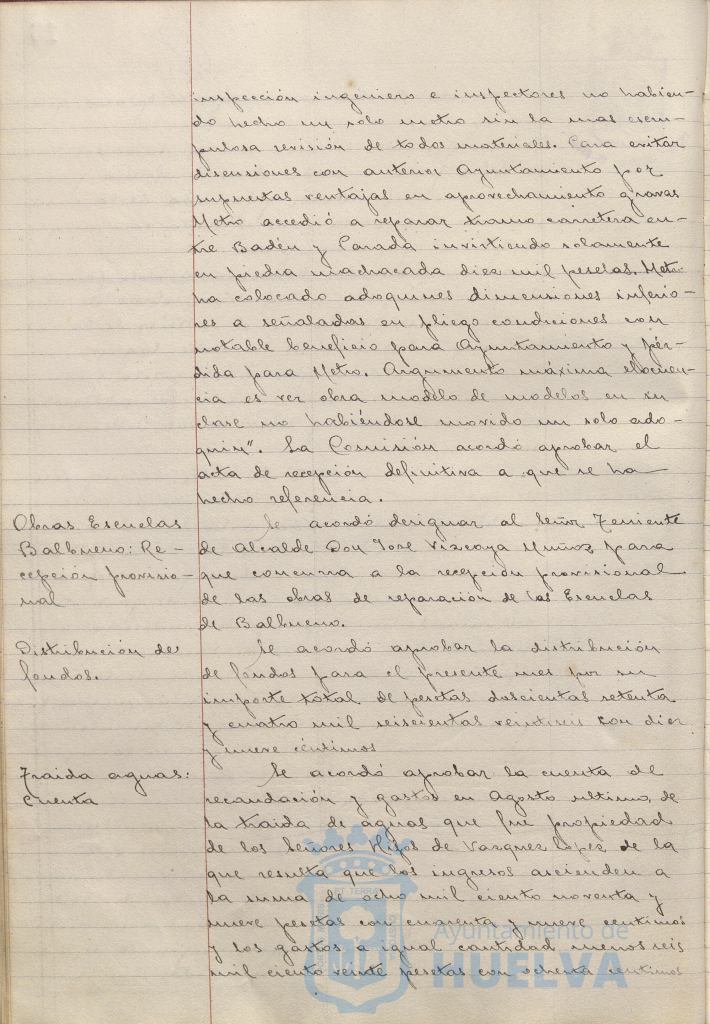 inspección ingeniero e inspectores no habien-
do hecho un solo metro sin la mas escru-
pulosa revisión de todos materiales. Para evitar
discusiones con anterior Ayuntamiento por
supuestas ventajas en aprovechamiento gravas
Metro accedió a reparar tramo carretera en-
tre Badén y Parada invirtiendo solamente
en piedra machacada diez mil pesetas. Metro
ha colocado adoquines dimensiones inferio-
res a señaladas en pliego condiciones con
notable beneficio para Ayuntamiento y pér-
dida para Metro. Argumento máxima elocuen-
cia es ver obra modelo de modelos en su
clase no habiéndose movido un solo ado-
quin". La Comisión acordó aprobar el
acta de recepción definitiva a que se ha
hecho referencia.
Obras Escuelas
Balbueno: Re-
cepción provisio-
nal
Se acordó designar al Señor Teniente
de Alcalde Don José Vizcaya Muñoz para
que concurra a la recepción provisional
de las obras de reparación de las Escuelas
de Balbueno.
Distribución de
fondos.
Se acordó aprobar la distribución
de fondos para el presente mes por su
importe total de pesetas doscientas setenta
y cuatro mil seiscientas veintiseis con diez
y nueve céntimos
Traida aguas:
Cuenta
Se acordó aprobar la cuenta de
recaudación y gastos en Agosto ultimo, de
la traida de aguas que fué propiedad
de los Señores Hijos de Vazquez Lopez, de la
que resulta que los ingresos ascienden a
la suma de ocho mil ciento noventa y
nueve pesetas con cuarenta y nueve centimos
y los gastos a igual cantidad menos seis
mil ciento veinte pesetas con ochenta centimos
Ayuntamiento de
HUELVA